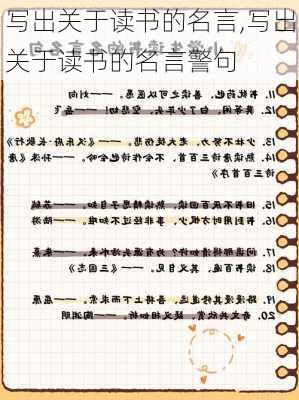 写出关于读书的名言,写出
关于读书的名言警句
11. 书犹药也，善读之可以医愚。——刘向
12. 莫等闲，白了少年头，空悲切！——岳飞
13. 少壮不努力，老大徒伤悲。——《汉乐府·长歌行》
14. 熟读唐诗三百首，不会作诗也会吟。——孙洙《唐
诗三百首序》
15. 旧书不厌百回读，熟读精思子自知。——苏轼
16. 书到用时方恨少，事非经过不知难。——陆游
17. 问渠那得清如许？为有源头活水来。——朱熹
18. 读书百遍，其义自见。——《三国志》
19. 路漫漫其修远兮，吾将上下而求索。——屈原
20. 奇文共欣赏，疑义相如析。——陶渊明